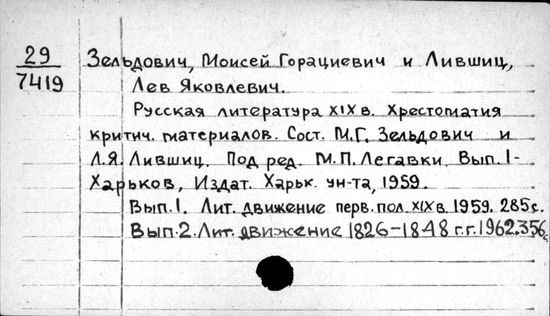 29
7419
Зельдович, Моисей Горациевич и Лившиц,
Лев Яковлевич.
Русская литература XIX в. Хрестоматия
критич. материалов. Сост. М.Г. Зельдович и
Л.Я. Лившиц. Под ред. М.П. Легавки. Вып. 1-
Харьков, Издат. Харьк. ун-та, 1959.
Вып. 1. Лит. движение перв. пол. XIX в. 1959. 285 с.
Вып. 2. Лит. движение 1826-1848 г.г. 1962. 356 с.